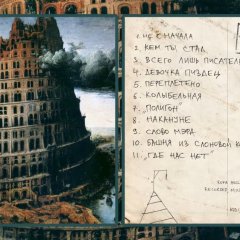 1. НЕ С НАЧАЛА
2. КЕМ ТЫ СТАЛ
3. ВСЕГО ЛИШЬ ПИСАТЕЛЬ
4. ДЕВОЧКА ПИЗДЕЦ
5. ПЕРЕПЛЕТЕНО
6. КОЛЫБЕЛЬНАЯ
7. „ПОЛИГОН"
8. НАКАНУНЕ
9. СЛОВО МЭРА
10. БАШНЯ ИЗ СЛОНОВОЙ К
11. „ГДЕ НАС НЕТ"